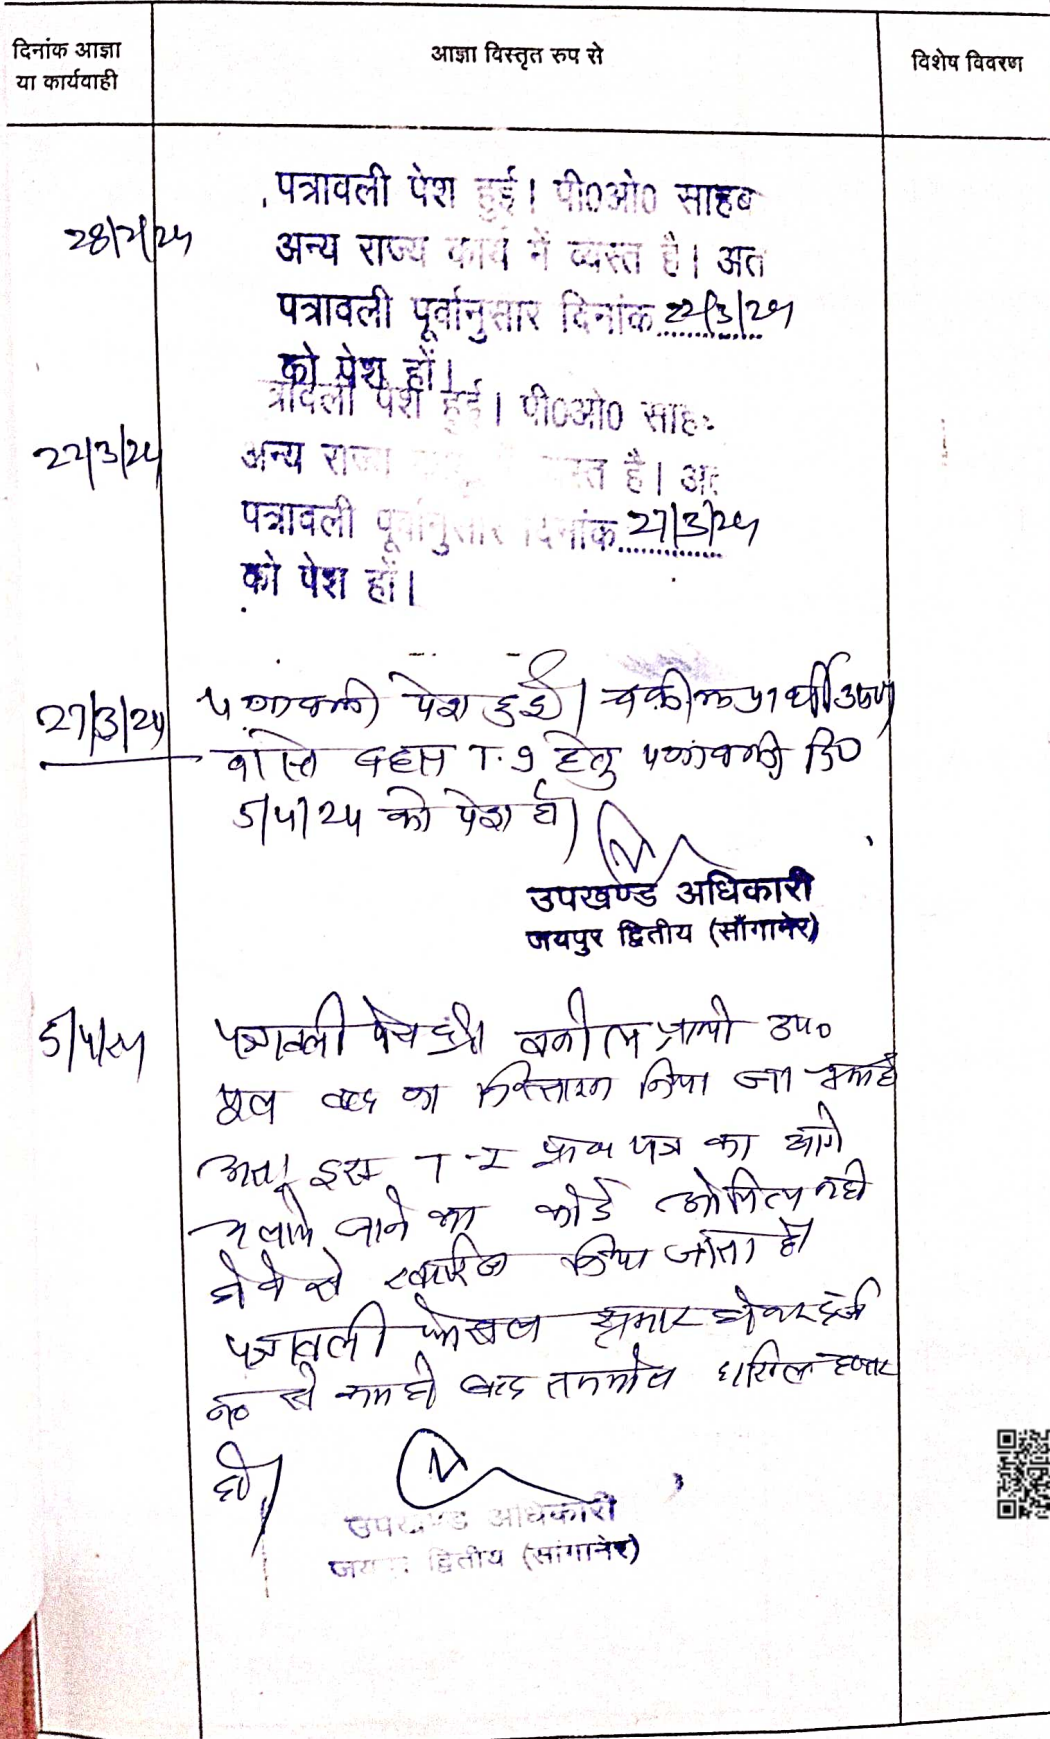 दिनांक आज्ञा
या कार्यवाही
आज्ञा विस्तृत रुप से
विशेष विवरण
पत्रावली पेश हुई। पी0ओ0 साहब
28/2/24
अन्य राज्य कार्य में व्यस्त है। अत
पत्रावली पूर्वानुसार दिनांक 22/3/24
को पेश हों।
त्रावली पेश हुई। पी0ओ0 साह
22/3/24
अन्य राज्य स्त है। अत
पत्रावली पूर्वानुसार दिनांक 27/3/24
को पेश हों।
27/3/24
पत्रावली पेश हुई। वकील प्रार्थी उप0
वास्ते बहस T.I हेतु पत्रावली दि0
5/4/24 को पेश हो।
उपखण्ड अधिकारी
जयपुर द्वितीय (साँगानेर)
5/4/24
पत्रावली पेश हुई। वकील प्रार्थी उप०
मूल वाद का निस्तारण किया जा चुका है
अतः इस T-I प्रा० पत्र का आगे
चलाये जाने का कोई औचित्य नही
होने से खारिज किया जाता है।
पत्रावली फैसल शुमार होकर दर्ज
न० से कम हो बाद तकमील दाखिल दफ्तर
हो।
उपखण्ड अधिकारी
जय द्वितीय (सांगानेर)